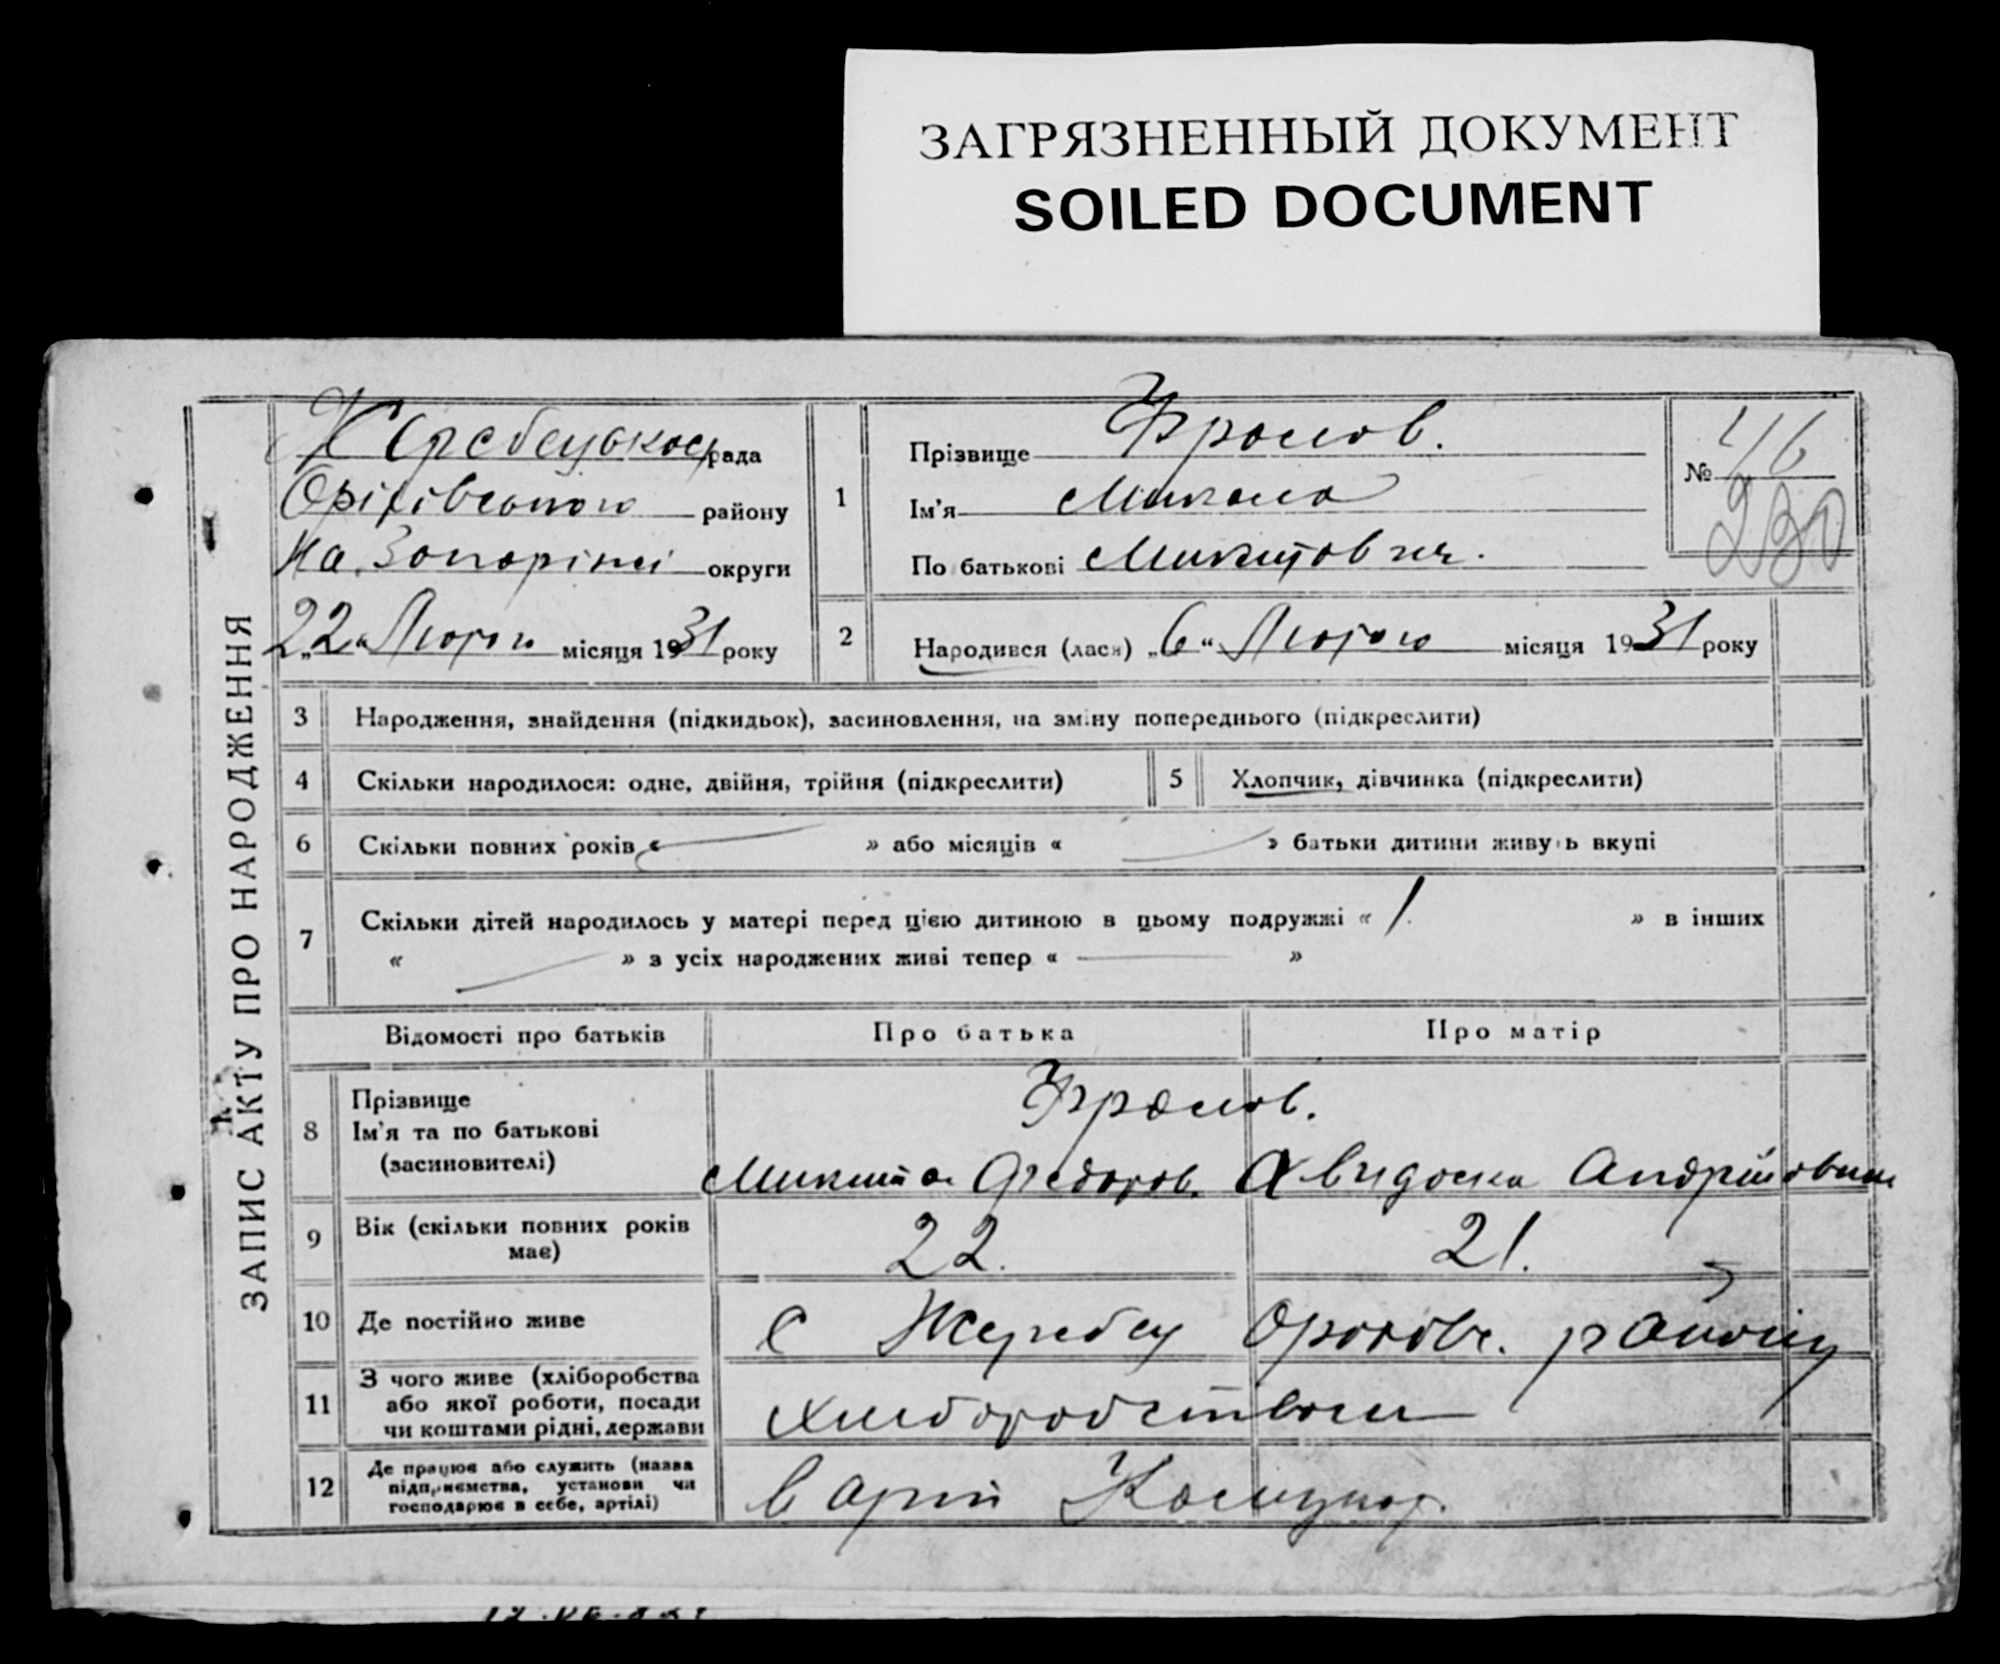 ЗАГРЯЗНЕННЫЙ ДОКУМЕНТ
SOILED DOCUMENT
ЗАПИС АКТУ ПРО НАРОДЖЕННЯ
Жеребецької рада
Оріхівського району
На Запоріжжі округи
„22“ Лютого місяця 1931 року
1
Прізвище Фролов.
Ім'я Микола
По батькові Микитович.
№ 46
230
2 Народився (лася) „6“ Лютого місяця 1931 року
3 Народження, знайдення (підкидьок), засиновлення, на зміну попереднього (підкреслити)
4 Скільки народилося: одне, двійня, трійня (підкреслити)
5 Хлопчик, дівчинка (підкреслити)
6 Скільки повних років « » або місяців « » батьки дитини живуть вкупі
7 Скільки дітей народилось у матері перед цією дитиною в цьому подружжі « 1. » в інших
« » з усіх народжених живі тепер « »
Відомості про батьків Про батька Про матір
8 Прізвище
Ім'я та по батькові
(засиновителі)
Фролов.
Микита Федоров. Авидоска
9 Вік (скільки повних років
має)
22. 21.
10 Де постійно живе с Жеребец Оріхівс. району
11 З чого живе (хліборобства
або якої роботи, посади
чи коштами рідні, держави
хліборобством
12 Де працює або служить (назва
підприємства, установи чи
господарює в себе, артілі)
в арт